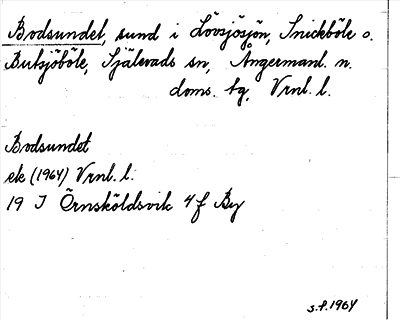 Bodsundet, sund i Lövsjösjön, Snickböle o.
Butsjöböle, Själevads sn, Ångermanl. n.
doms. tg, Vrnl. l.
Bodsundet
ek (1964) Vrnl. l.
19 J Örnsköldsvik 4 f By
s.f. 1964